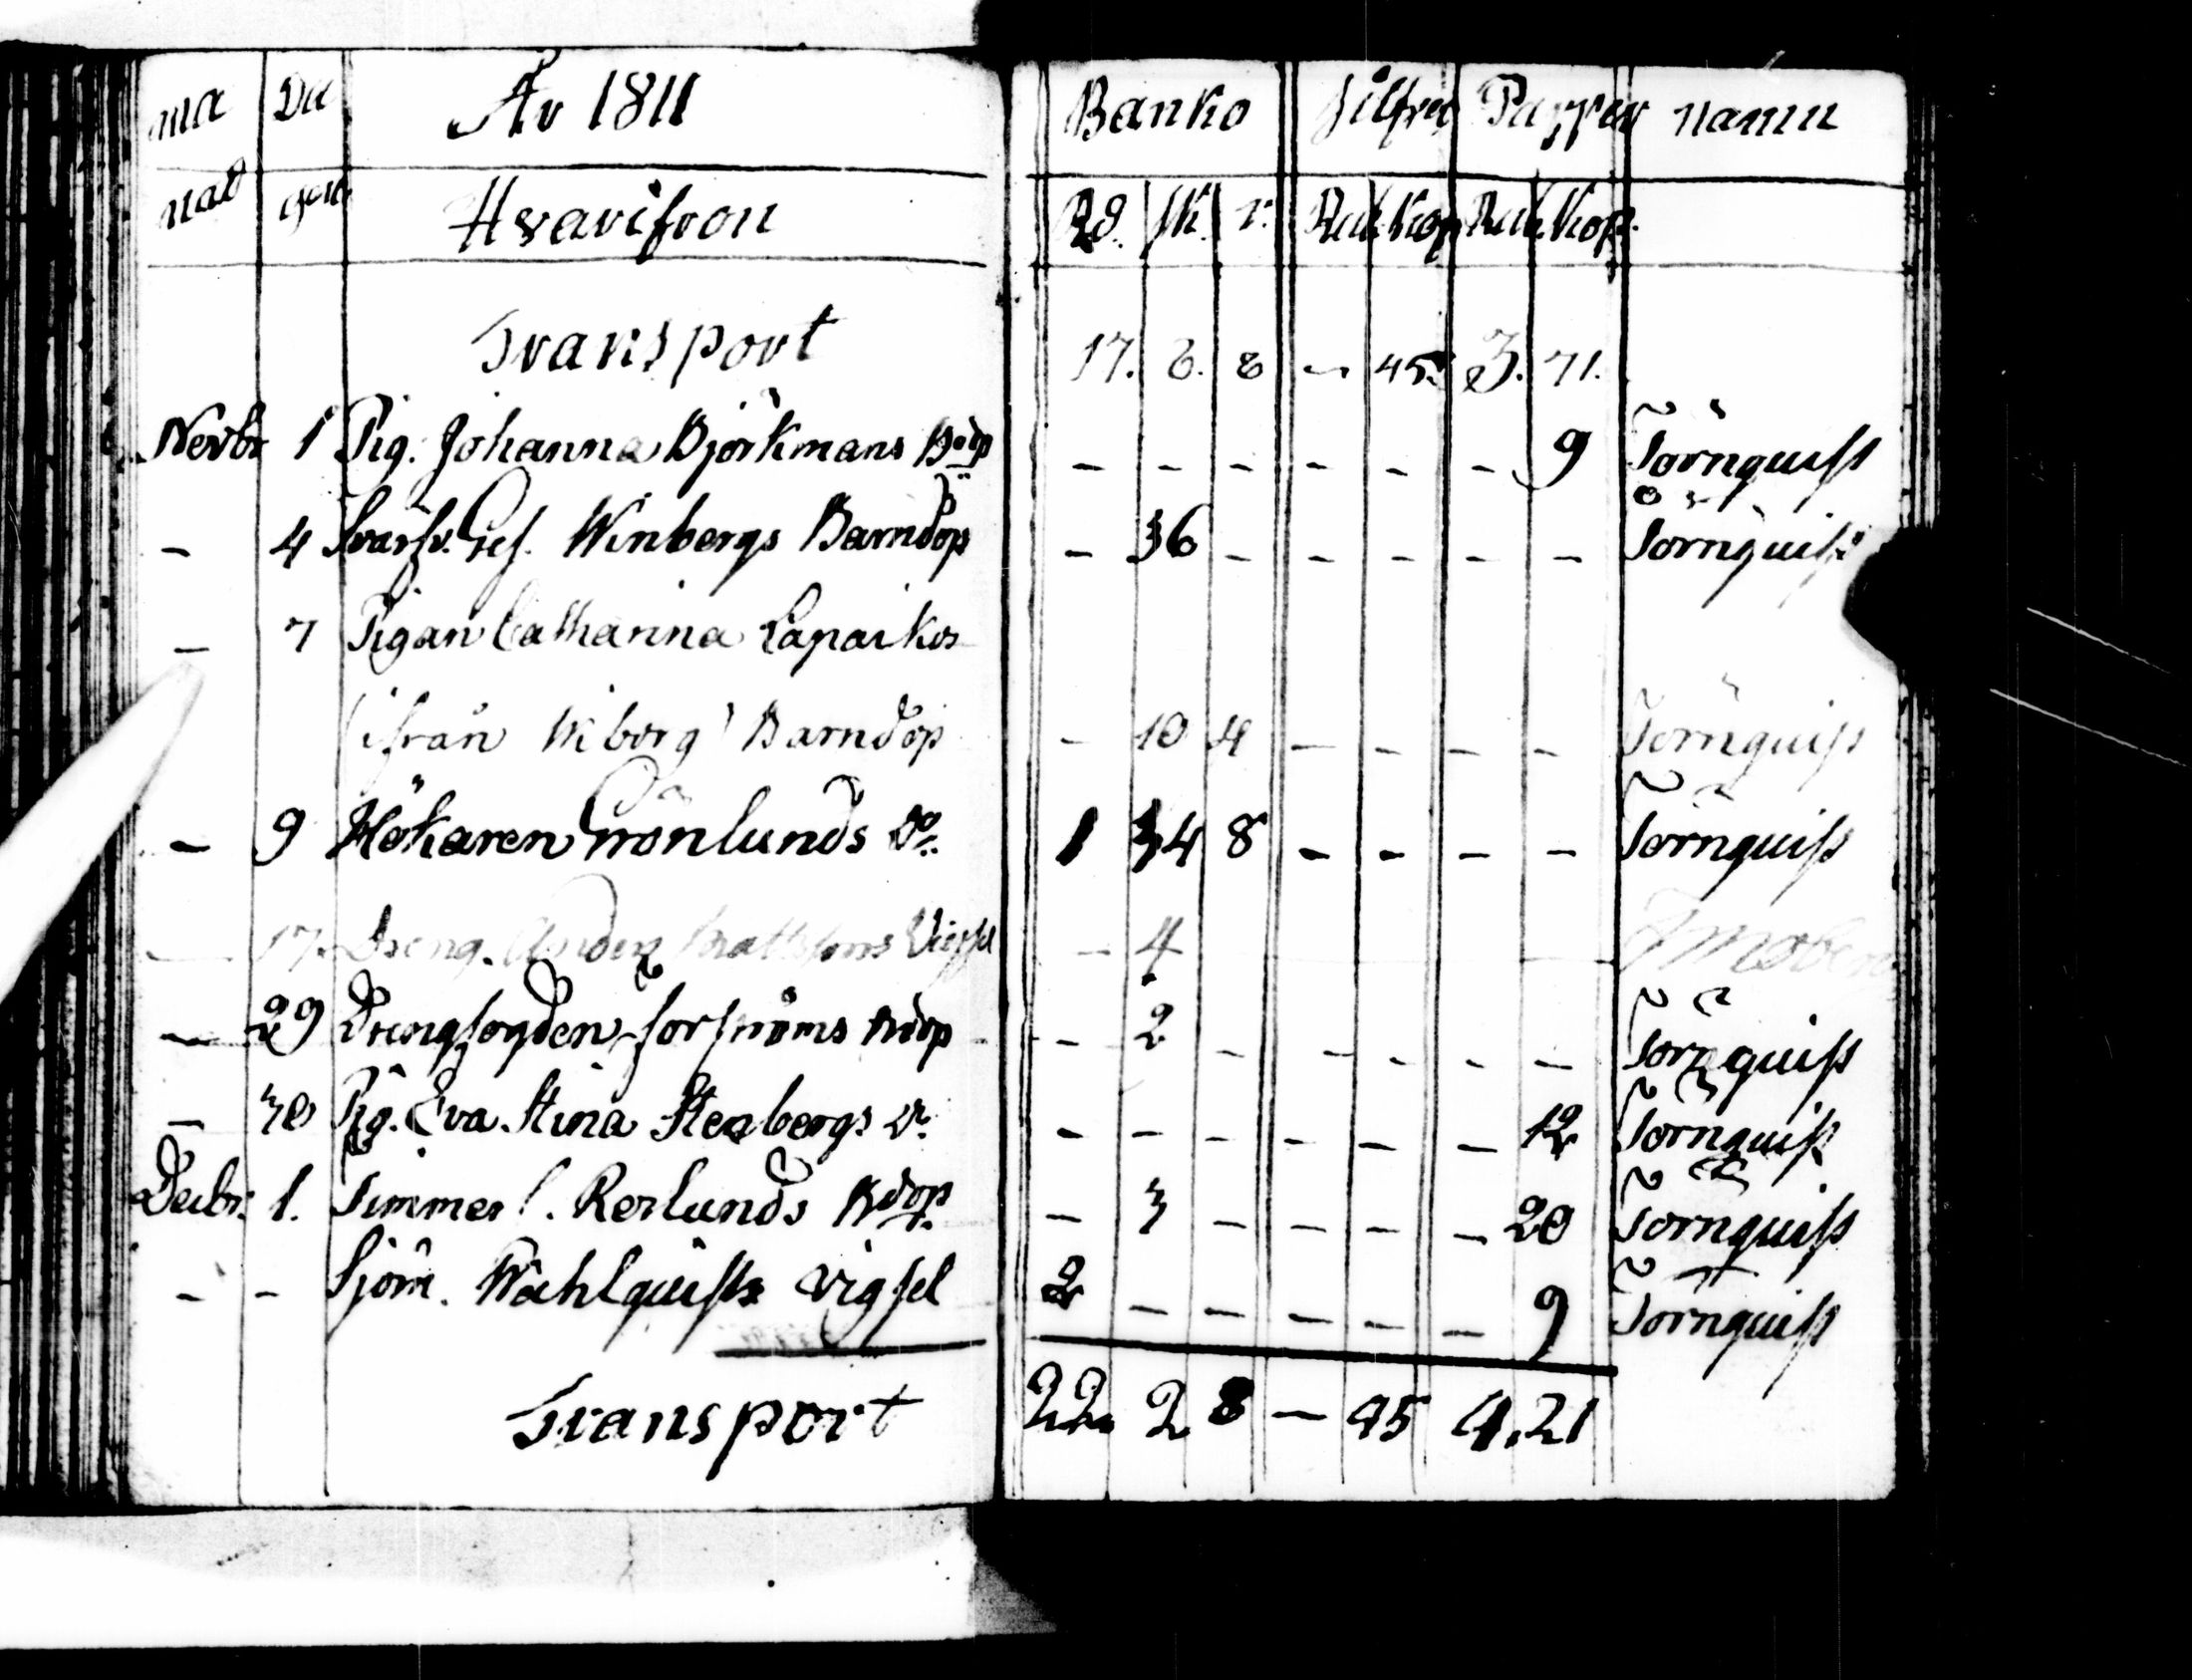 ma Da År 1811 Banko Silfver Papper namn
nad garh Hvarifron Rd. sk. r. Rub Kop Rub. Kop.
Transport 17. 8. 8 - 45. 3. 71.
Novbr 1 Pig. Johanna Björkmans Bdp - - - - - - 9 Törnquist
- 4 Svarfv. Ges. Winbergs Barndop - 36 - - - - - Törnquist
- 7 Pigan Catharina Lapaikos
(ifrån Wiborg) Barndop - 10 4 - - - - Törnquist
- 9 Hökaren Grönlunds do. 1 34 8 - - - - Törnquist
- 17. Dreng. Anders Mattsons Viegsel - 4 -
- 29 Drengfogden Forströms Bdop - 2 - - - - - Törnquist
- 30 Pig. Eva Stina Stenbergs do. - - - - - - 12 Törnquist
Decbr. 1. Timmer Rerlunds Bdop. - 3 - - - - 20 Törnquist
- - Sjöm. Wahlquists vigsel 2 - - - - - 9 Törnquist
Transport 22. 2 8 - 45 4. 21